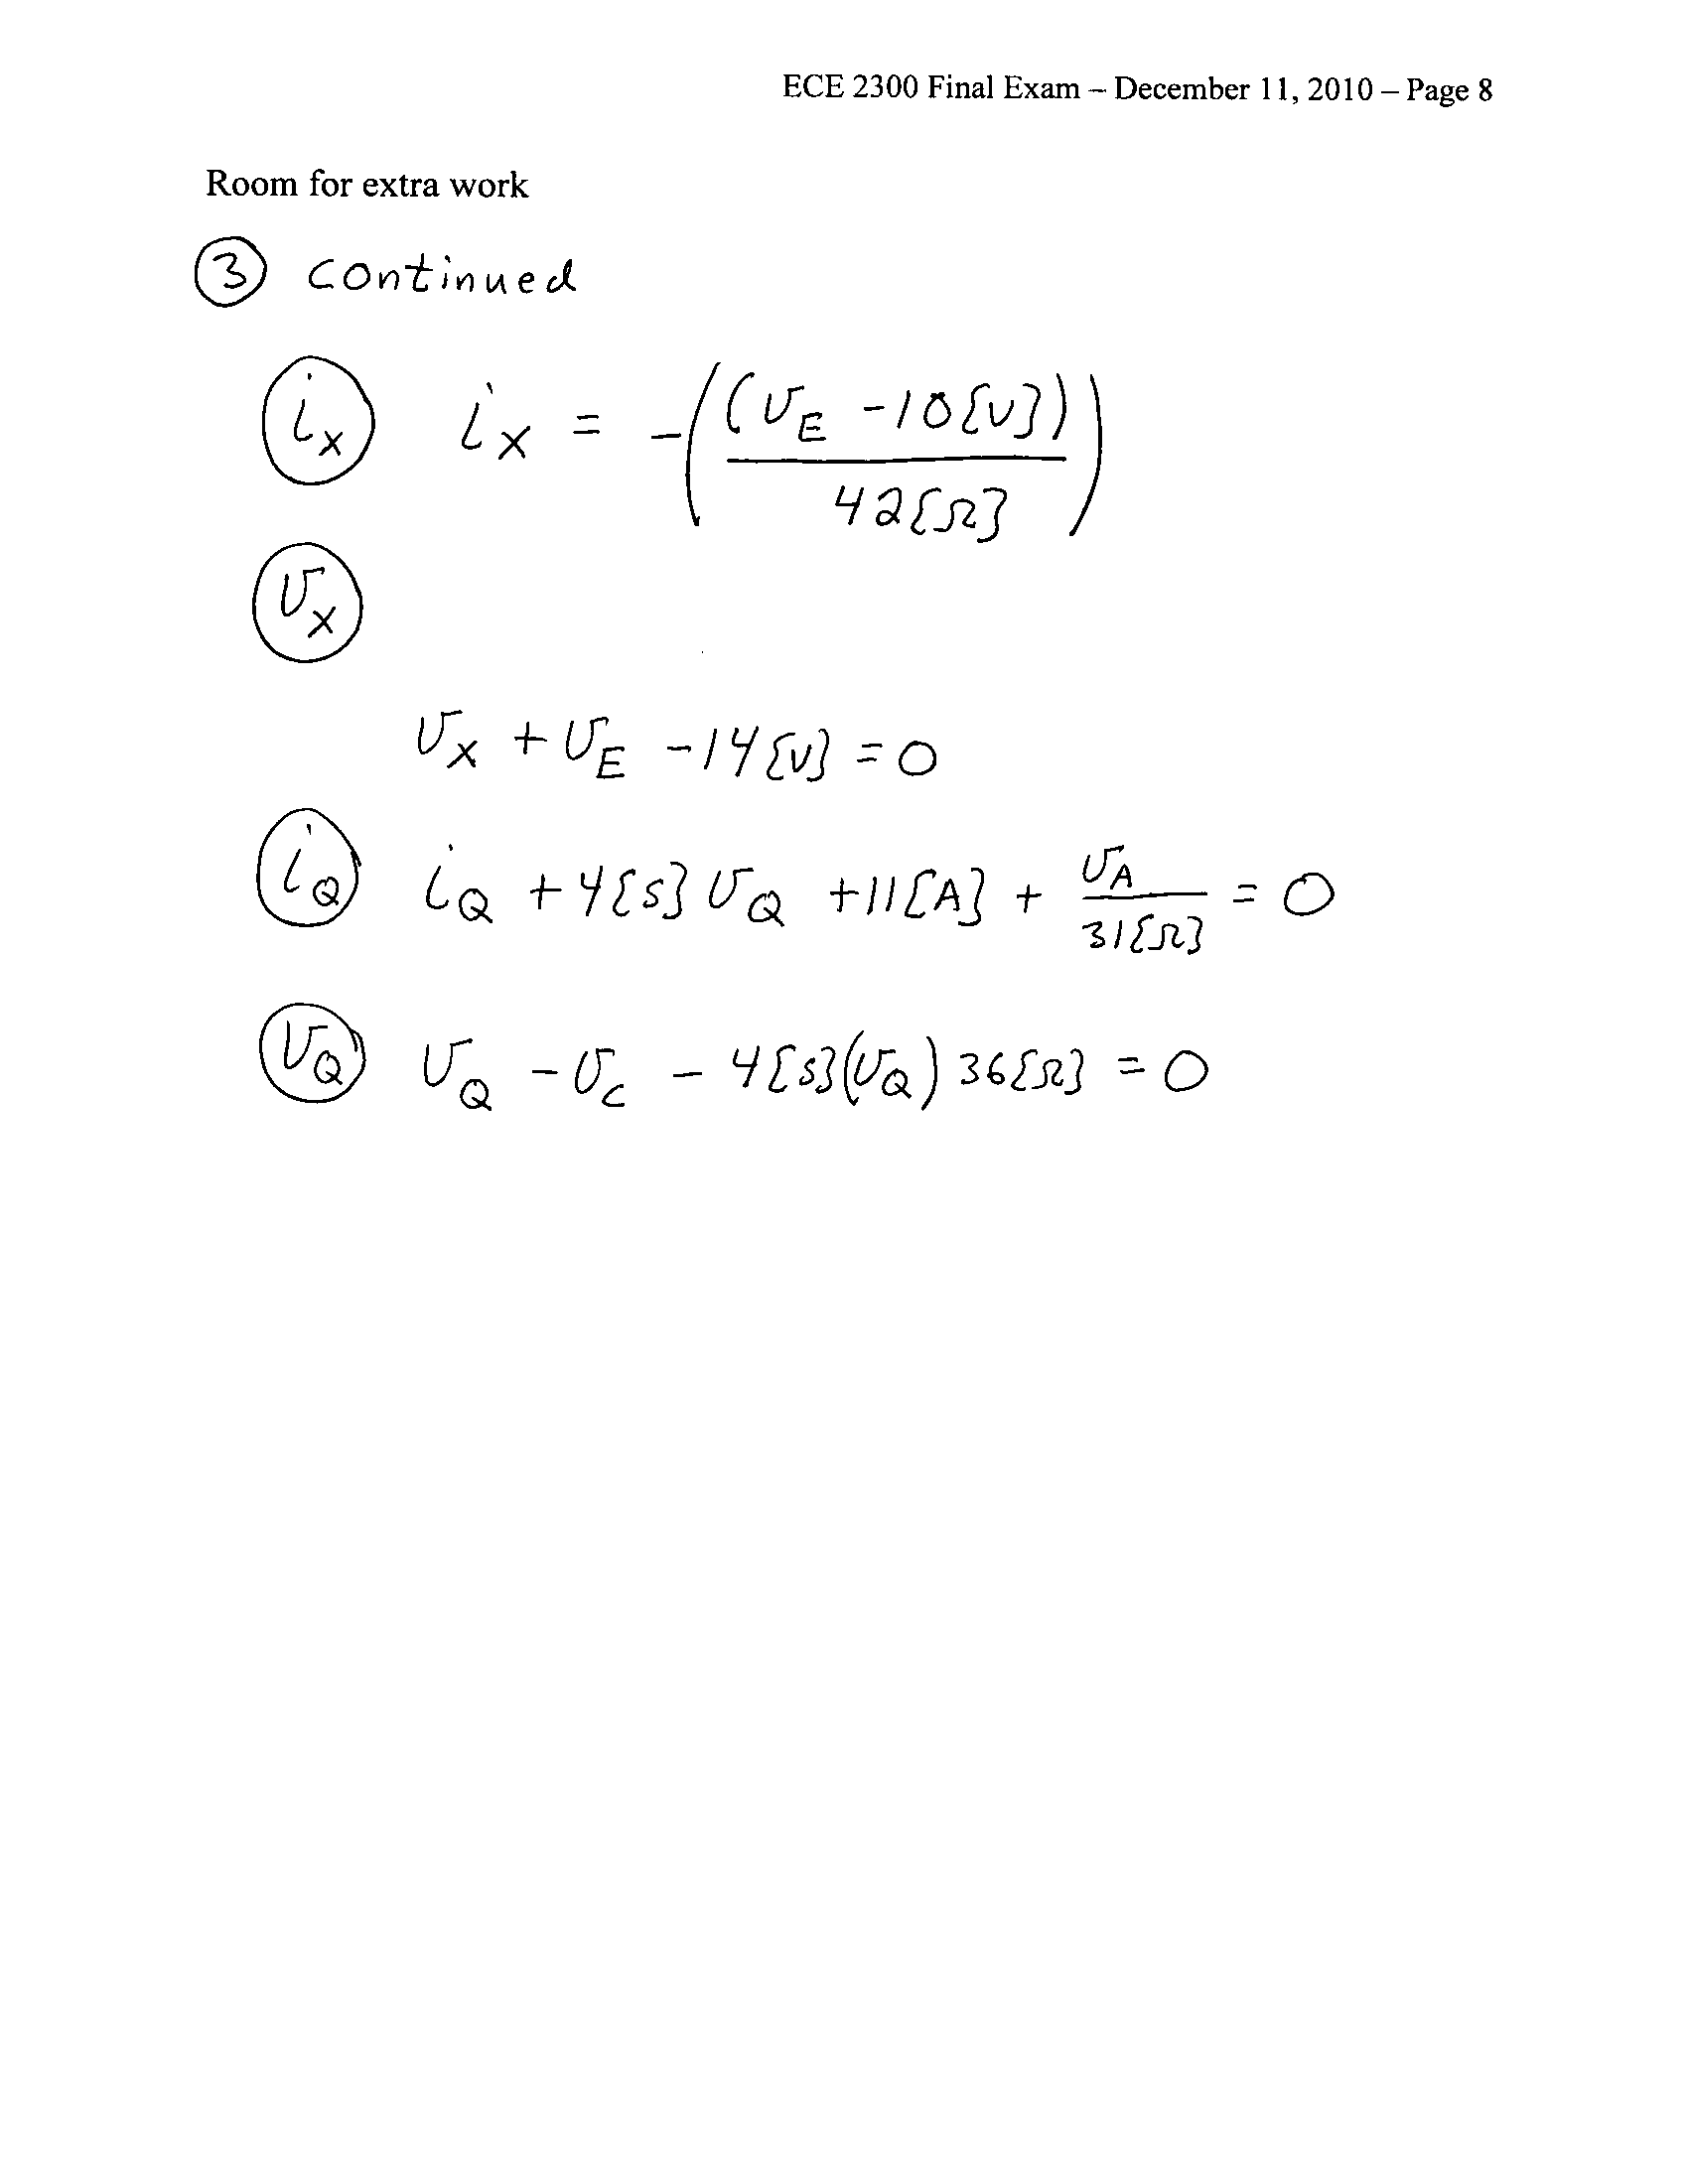 ECE 2300 Final Exam – December 11, 2010 – Page 8
Room for extra work
③ continued
i_X i_X = -((v_E - 10{V}) / 42{Ω})
v_X
v_X + v_E - 14{V} = 0
i_Q i_Q + 4{S} v_Q + 11{A} + v_A / 31{Ω} = 0
v_Q v_Q - v_C - 4{S}(v_Q) 36{Ω} = 0